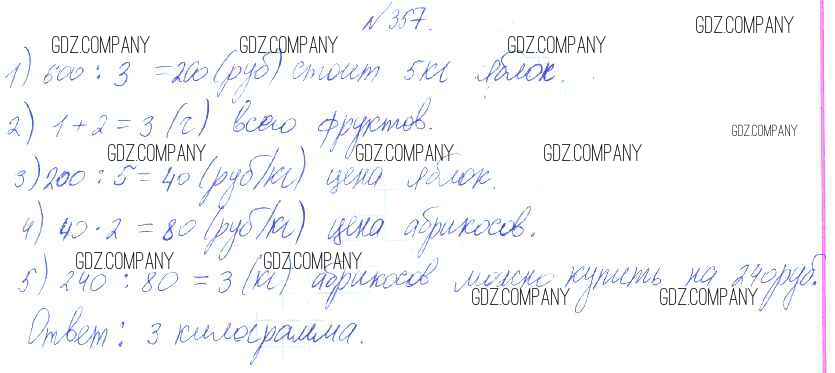 №357.
GDZ.COMPANY GDZ.COMPANY GDZ.COMPANY GDZ.COMPANY
1) 600 : 3 = 200 (руб) стоит 5кг яблок.
2) 1 + 2 = 3 (г) всего фруктов.
GDZ.COMPANY
GDZ.COMPANY GDZ.COMPANY GDZ.COMPANY
3) 200 : 5 = 40 (руб/кг) цена яблок.
4) 40 · 2 = 80 (руб/кг) цена абрикосов.
GDZ.COMPANY GDZ.COMPANY
5) 240 : 80 = 3 (кг) абрикосов можно купить на 240руб.
GDZ.COMPANY GDZ.COMPANY
Ответ: 3 килограмма.